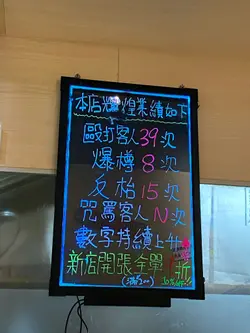 本店輝煌業績如下
毆打客人39次
爆樽8次
反枱15次
咒罵客人N次
數字持續上升
新店開張全單 折